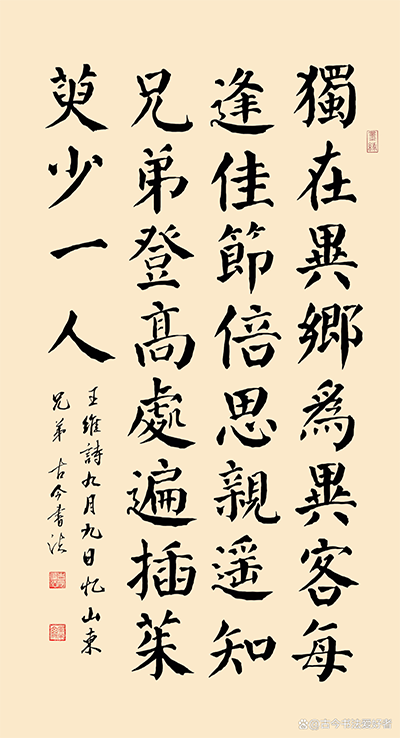 獨在異鄉爲異客每
逢佳節倍思親遥知
兄弟登高處遍插茱
萸少一人
王維詩九月九日忆山東
兄弟 古今書法